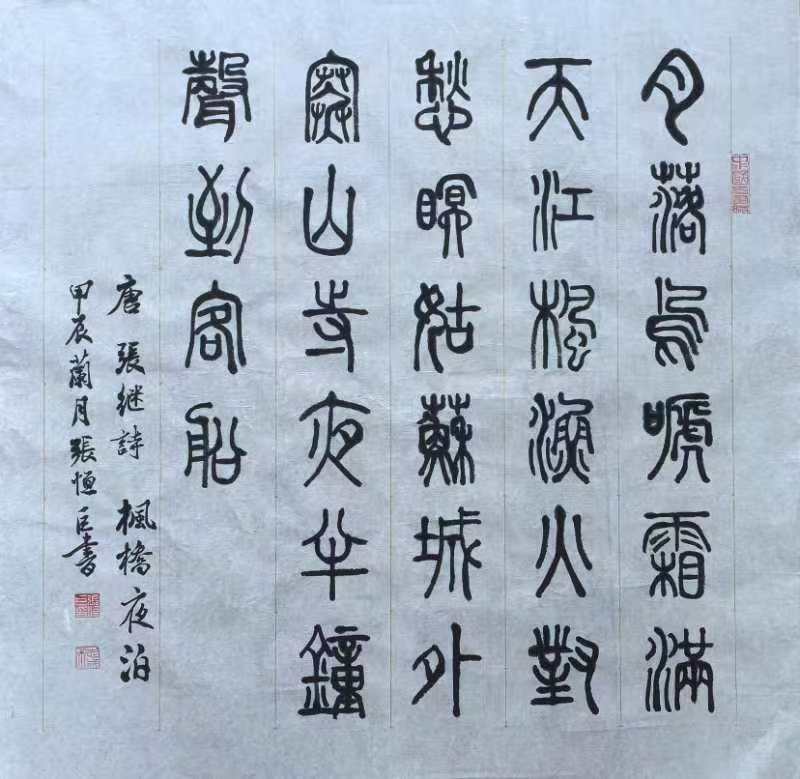 月落烏嗁霜滿
天江楓漁火對
愁瞑姑蘇城外
寒山寺夜半鐘
聲到客船
唐張継詩楓橋夜泊
甲辰蘭月張恒書